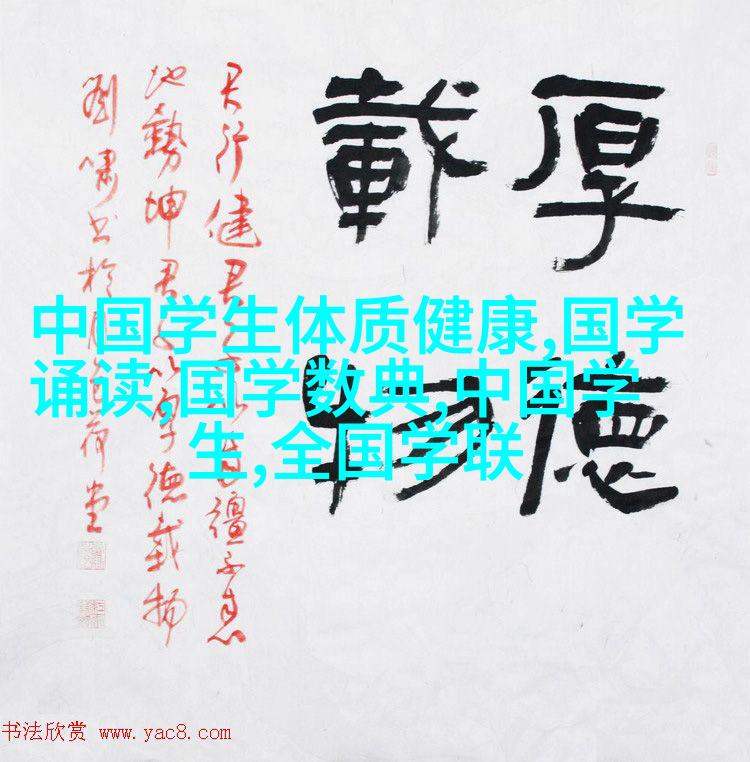 厚德
載物
天行健君子以自彊不息
地勢坤君子以厚德載物
劉嘯书於荷堂
中国学生体质健康,国学
诵读,国学数典,中国学
生,全国学联
书法欣赏 www.yac8.com